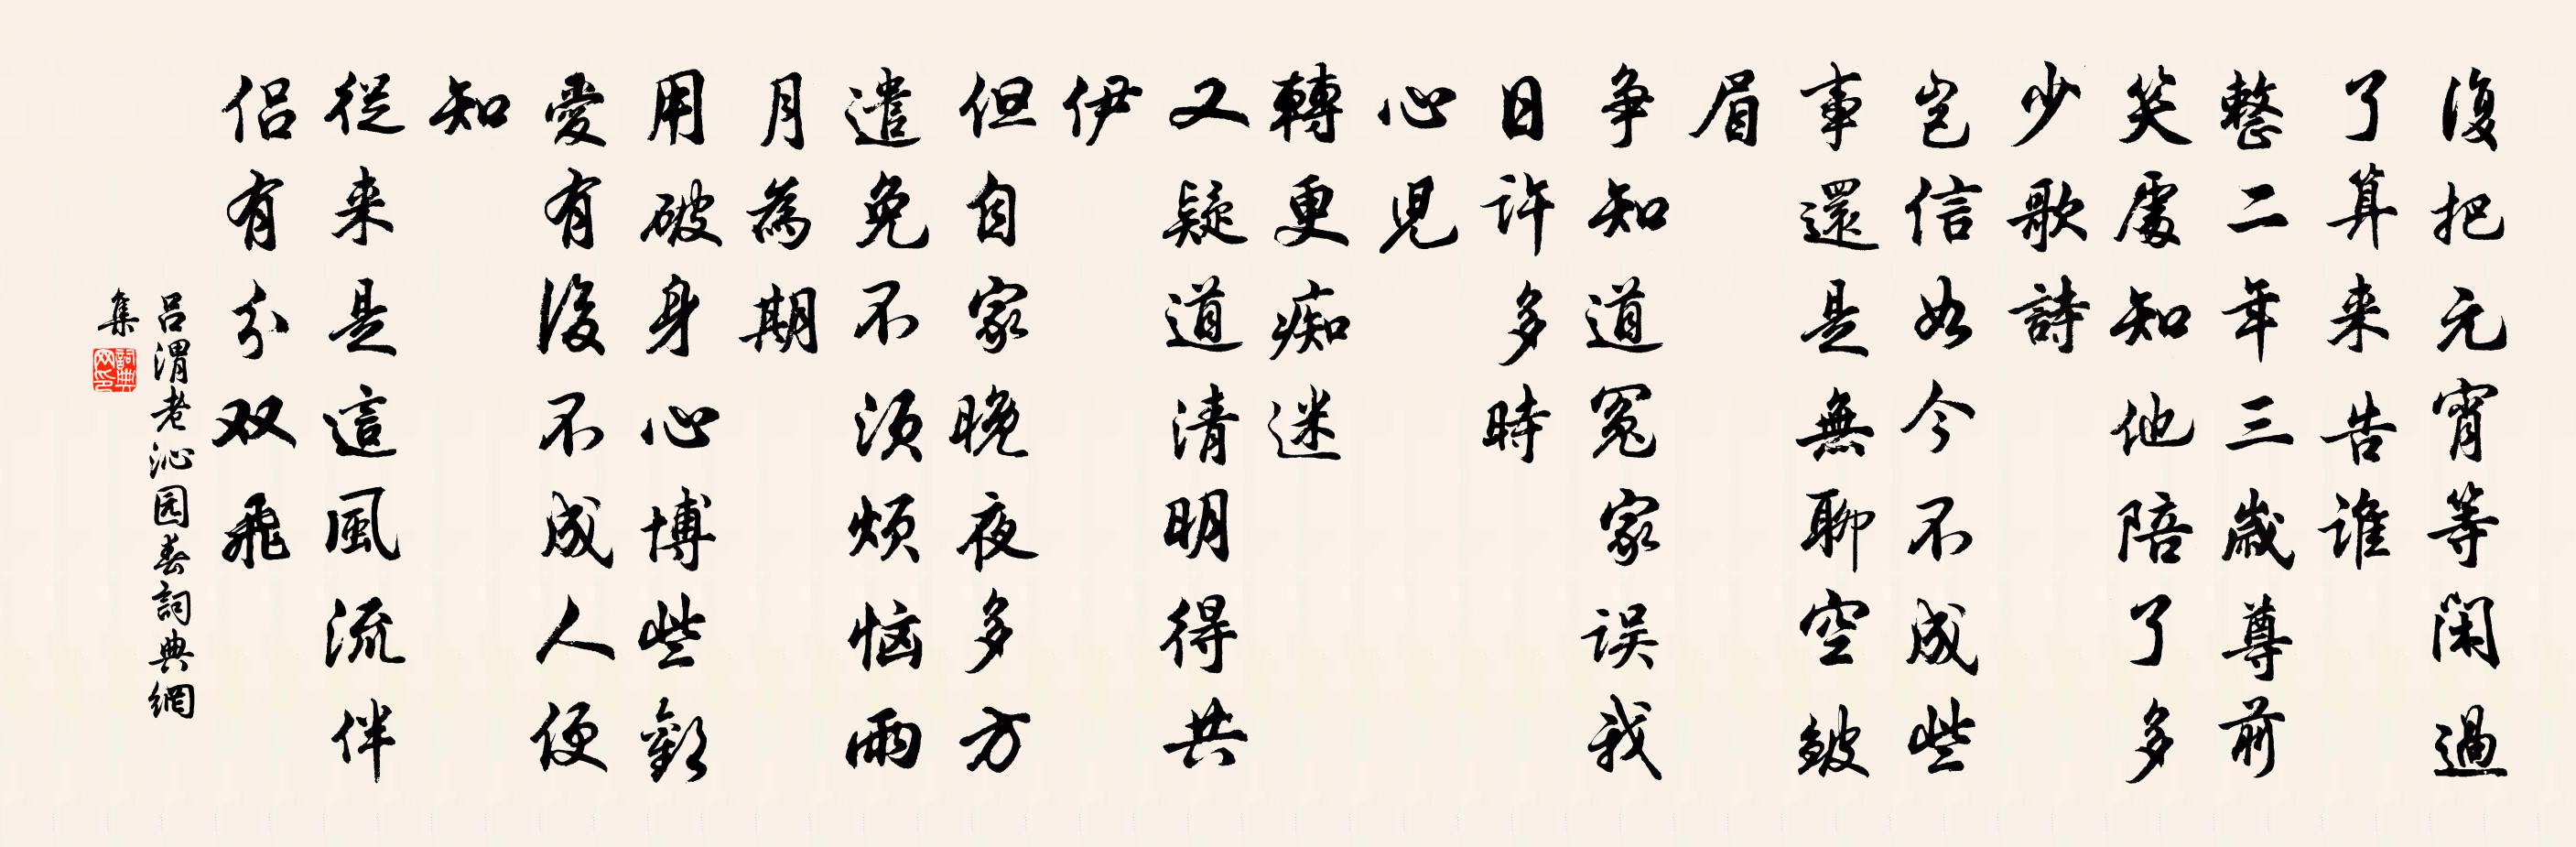 復把元宵等閑過
了算来告谁
整二年三歲尊前
笑處知他陪了多
少歌詩
岂信如今不成些
事還是無聊空皱
眉
争知道冤家误我
日許多時
心児
轉更痴迷
又疑道清明得共
伊
但自家晚夜多方
遣免不须烦恼雨
月為期
用破身心博些歡
愛有後不成人便
知
從来是這風流伴
侣有分双飛
吕渭老沁园春詞典網
集
詞典网印